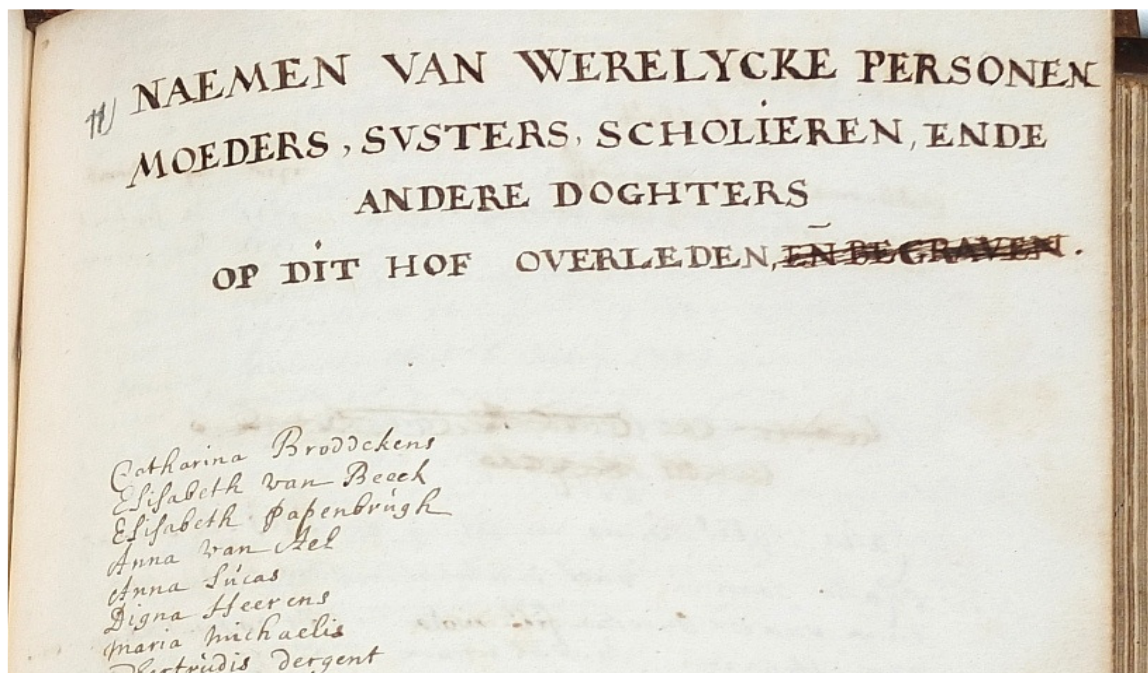 NAEMEN VAN WERELYCKE PERSONEN
MOEDERS, SVSTERS, SCHOLIEREN, ENDE
ANDERE DOGHTERS
OP DIT HOF OVERLEDEN, EN̄ BEGRAVEN.
Catharina Broddekens
Elisabeth van Beeck
Elisabeth Papenbrúgh
Anna van Hel
Anna Lúcas
Digna Heerens
Maria Michaelis
Gertrúdis dergent